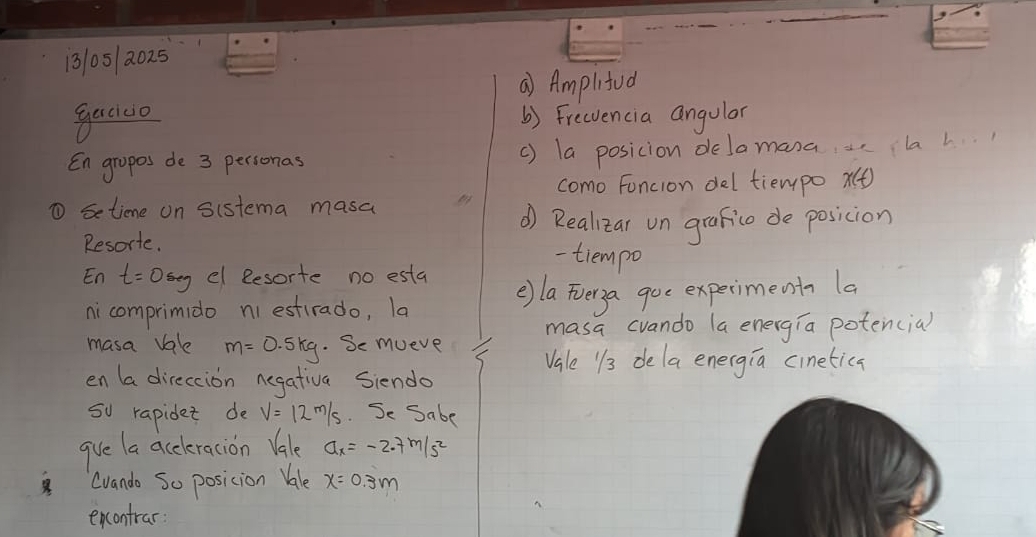 13/05/2025
Ejercicio
En grupos de 3 personas
① Se tiene un sistema masa
Resorte.
En t=0seg el Resorte no esta
ni comprimido ni estirado, la
masa Vale m=0.5kg. Se mueve
en la dirección negativa Siendo
su rapidez de V=12m/s. Se Sabe
que la aceleración Vale ax=-2.7m/s²
Cuando Su posicion Vale x=0.3m
encontrar:
a) Amplitud
b) Frecuencia angular
c) la posicion de la masa
como Funcion del tiempo x(t)
d) Realizar un grafico de posicion
-tiempo
e) la Fuerza que experimenta la
masa cuando la energía potencial
Vale 1/3 de la energía cinetica